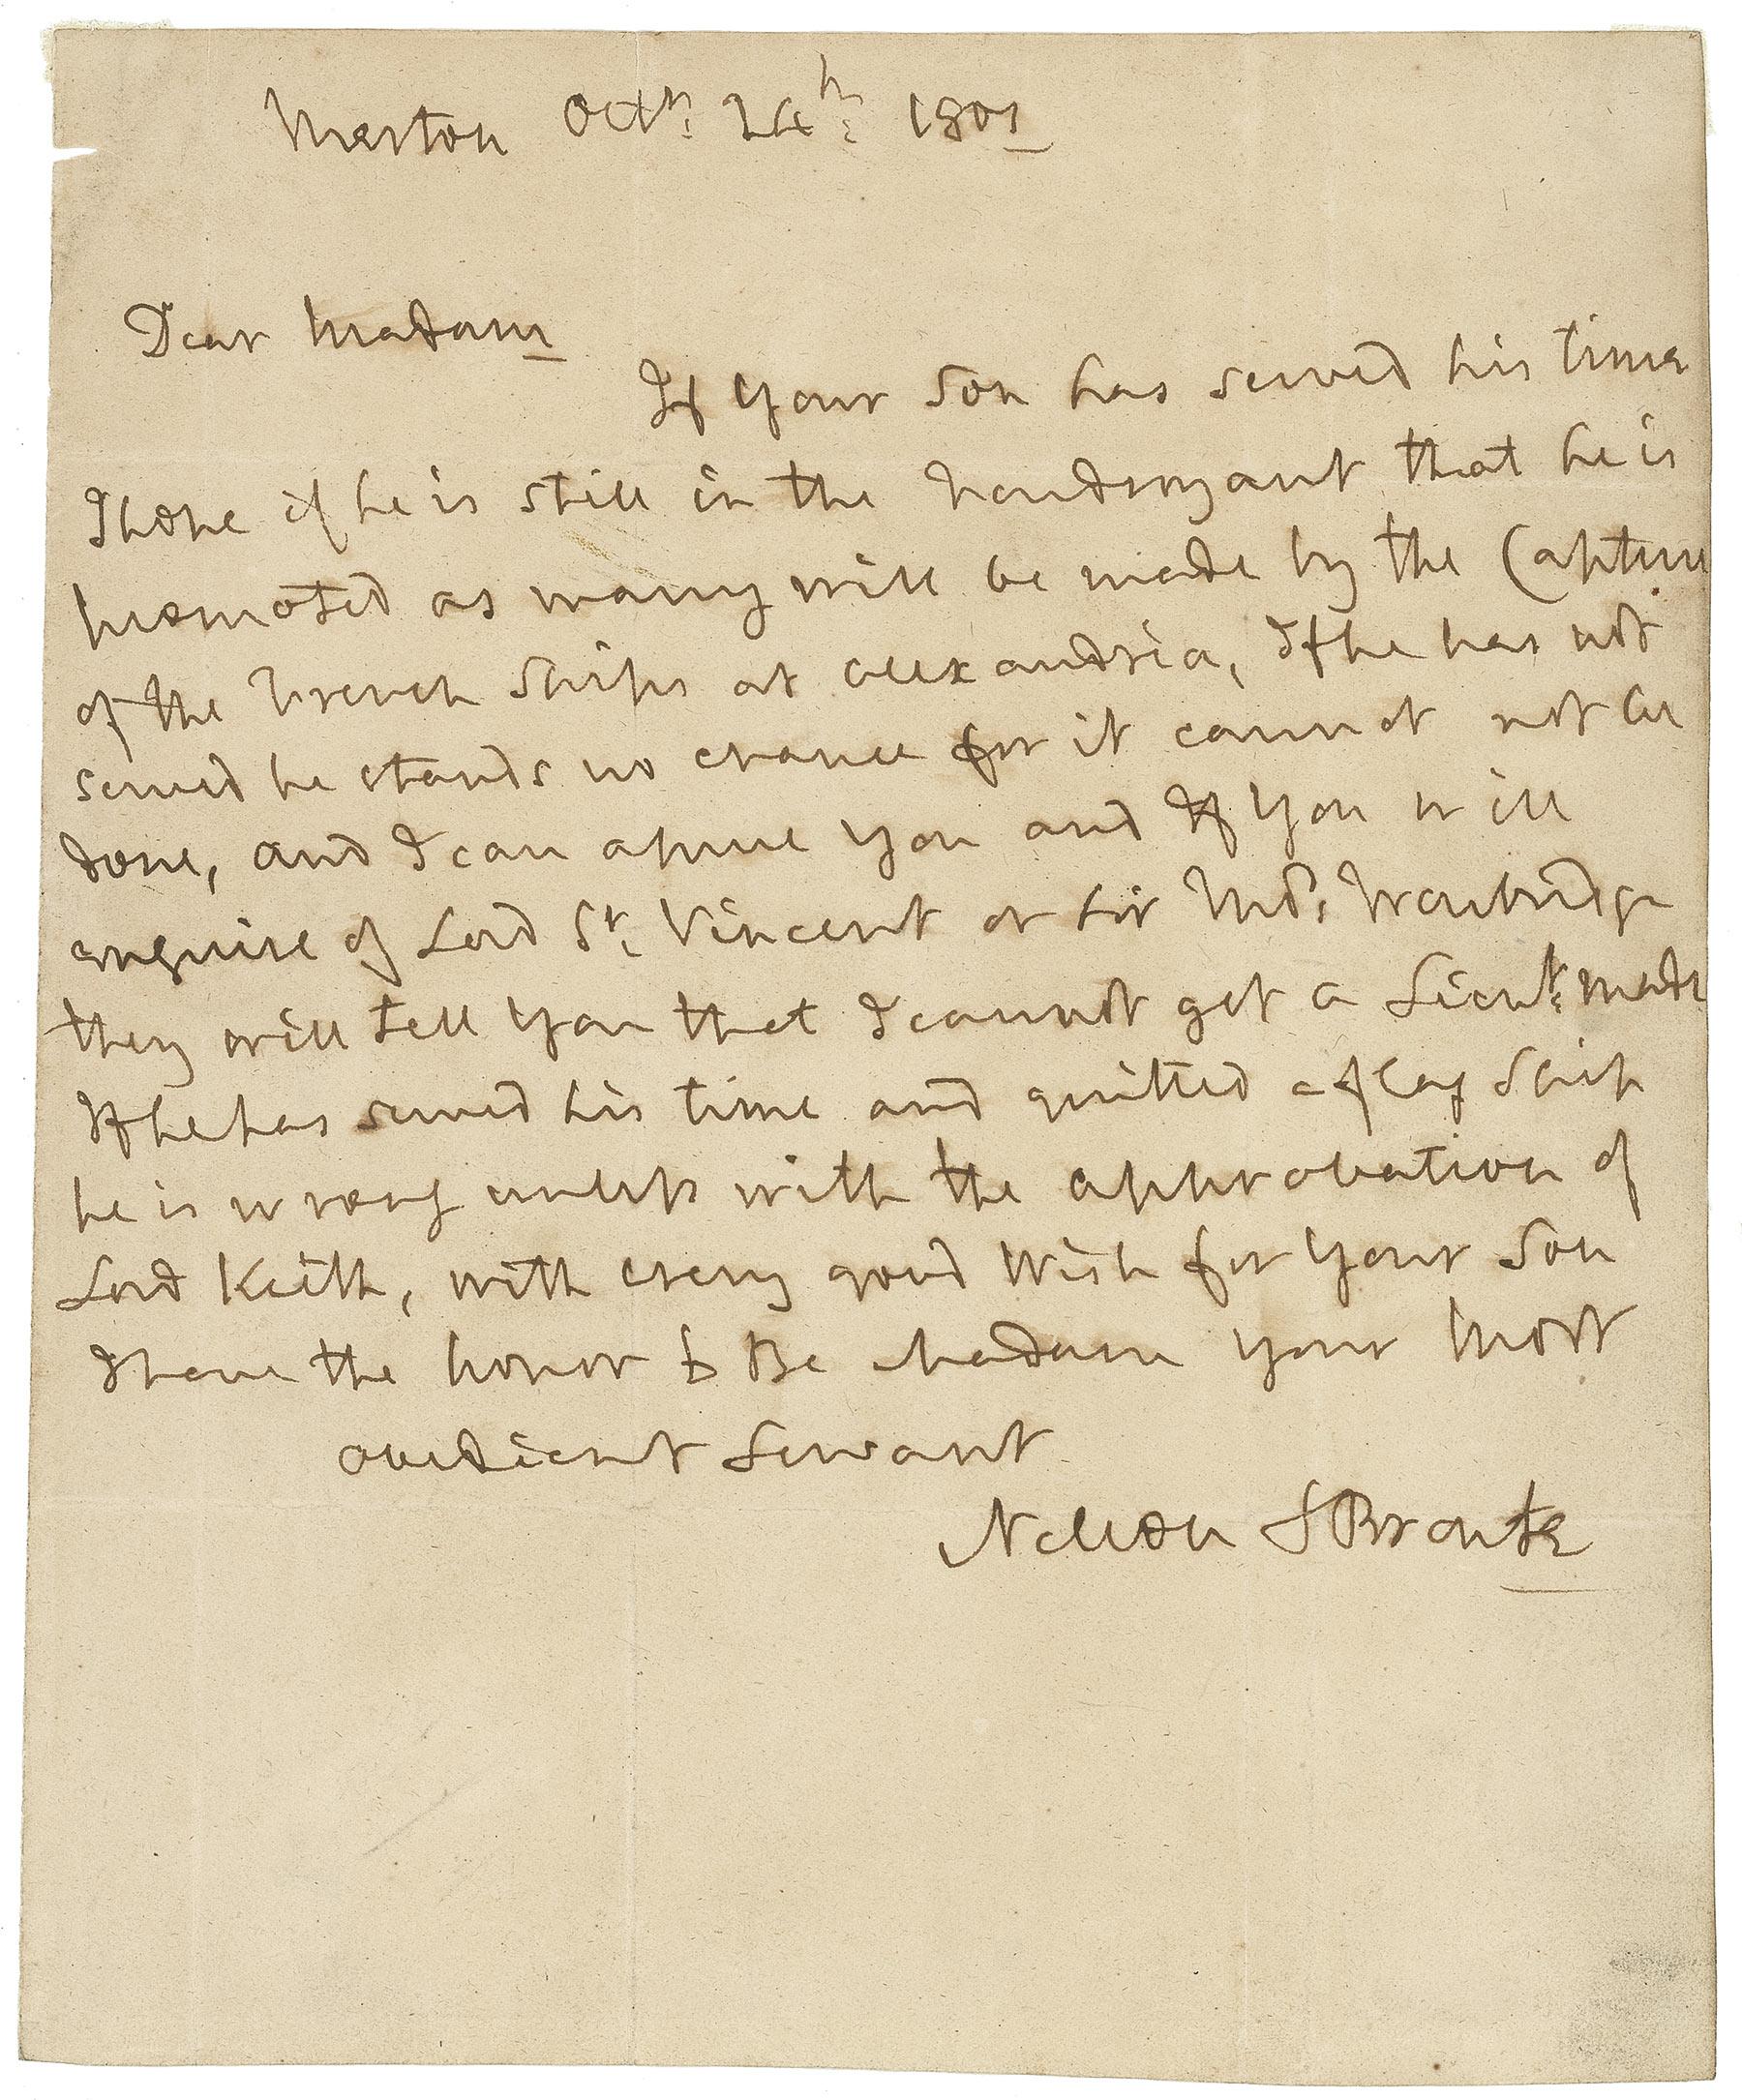 Merton Octr: 24th: 1801
Dear Madam
If Your Son has served his time
I hope if he is still in the Foudroyant that he is
promoted as many will be made by the Capture
of the French Ships at Alexandria, If he has not
served he stands no chance for it cannot not be
done, and I can assure you and If You will
enquire of Lord St: Vincent or Sir Thos. Troubridge
they will tell You that I cannot get a Lieut: made
If he has served his time and quitted a flag Ship
he is wrong unless with the approbation of
Lord Keith, with every good Wish for Your Son
I have the honor to Be Madam your Most
obedient Servant
Nelson & Bronte